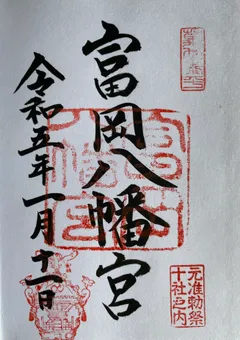 富岡八幡宮
元准勅祭
十社之内
令和五年一月十一日